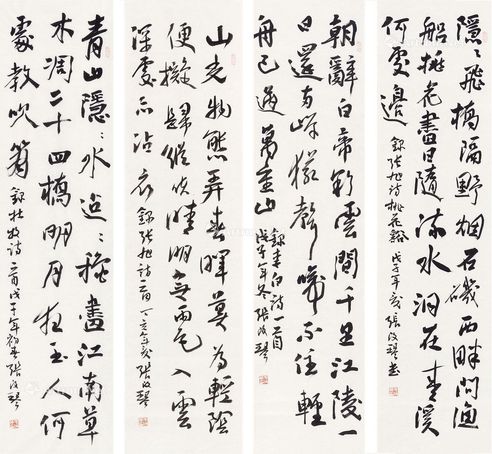 隱〻飛橋隔野烟石磯西畔問漁
船桃花盡日隨流水洞在青溪
何處邊
錄張旭詩桃花谿 戊子年 張改琴書
朝辭白帝彩雲間千里江陵一
日還兩岸猿聲啼不住輕
舟已過萬重山
錄李白詩一首
戊子年冬 張改琴
山光物態弄春暉莫為輕陰
便擬歸縱使晴明無雨色入雲
深處亦沾衣
錄張旭詩一首 丁亥年 張改琴
青山隱〻水迢〻秋盡江南草
木凋二十四橋明月夜玉人何
處教吹簫
錄杜牧詩一首戊子年初春張改琴